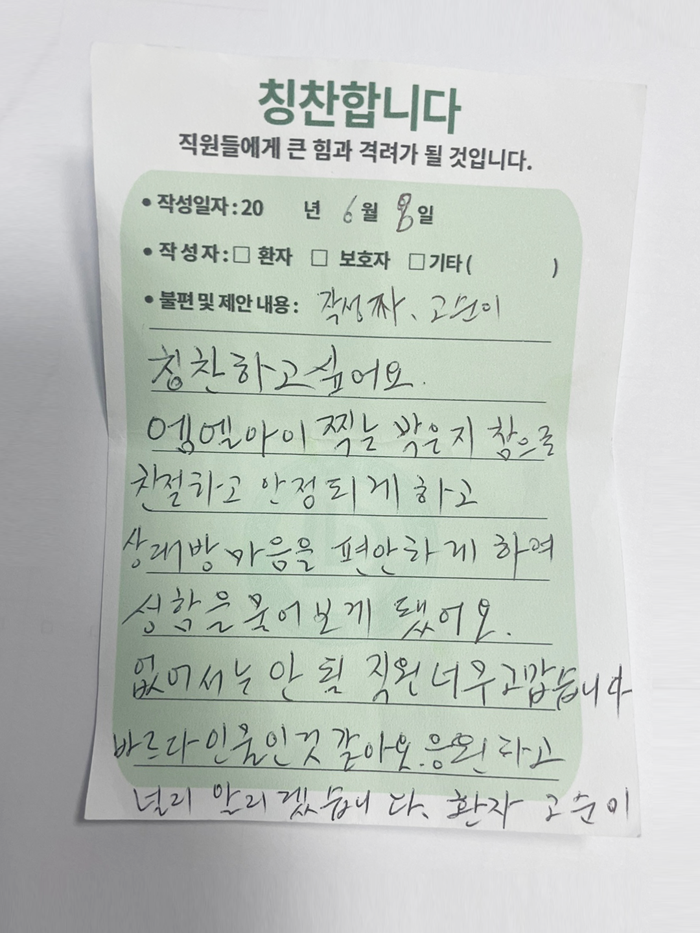 칭찬합니다
직원들에게 큰 힘과 격려가 될 것입니다.
• 작성일자 : 20 년 6월 8일
• 작 성 자 : □ 환자 □ 보호자 □ 기타 ( )
• 불편 및 제안 내용 : 작성짜. 고순이
칭찬하고싶어요.
엠엘아이 찍는 박은지 참으로
친절하고 안정되게 하고
상대방 마음을 편안하게 하여
성함을 물어보게 됐어요.
없어서는 안 됨 직원 너무 고맙습니다
바르다 인물인것 같아요. 응원하고
널리 알리겠습니다. 환자 고순이